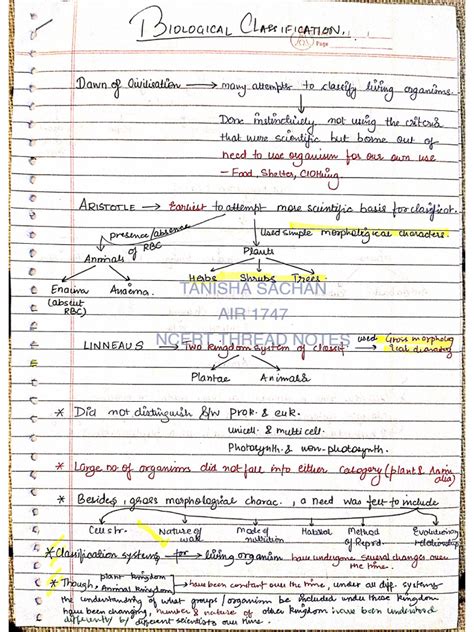 BIOLOGICAL CLASSIFICATION.
Page
Dawn of Civilisation → many attempts to classify living organisms.
Done instinctively not using the criteria
that were scientific but borne out of
need to use organism for our own use
- Food, Shelter, Clothing.
ARISTOTLE → Earliest to attempt more scientific basis for classificat.
presence/absence of RBC
Used simple morphological characters.
Animals
Plants
Enaima (absent RBC)
Anaema.
Herbs Shrubs Trees.
TANISHA SACHAN
AIR 1747
NCERT THREAD NOTES
LINNEAUS → Two kingdom system of classif → used Gross morphological characters
Plantae Animals
* Did not distinguish b/w prok. & euk.
unicell. & multicell.
Photosynth. & non-photosynth.
* Large no of organisms did not fall into either category (plant & Animalia)
* Besides, gross morphological charac., a need was felt to include
Cell str. Nature of wall mode of nutrition Habitat Method of Reprd. Evolutionary relationship
* Classification systems for living organism have undergone several changes over the time.
* Though, plant kingdom Animal Kingdom have been constant over the time, under all diff. systems
the understanding of what groups / organism be included under these kingdom
have been changing, number & nature of other kingdom have been understood
differently by different scientists over time.